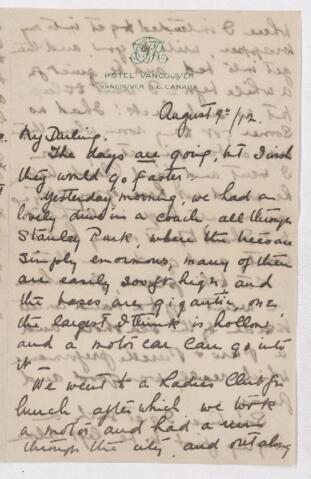 HOTEL VANCOUVER
VANCOUVER B.C. CANADA
August 9th/12.
My Darling.
The days are going, but I wish
they would go faster.
Yesterday morning, we had a
lovely drive in a coach all through
Stanley Park, where the trees are
simply enormous, many of them
are easily 200ft high, and
the bases are gigantic, one
the largest I think is hollow
and a motor car can go into
it.
We went to a Ladies Club for
lunch after which we took
a motor and had a run
through the city, and out along